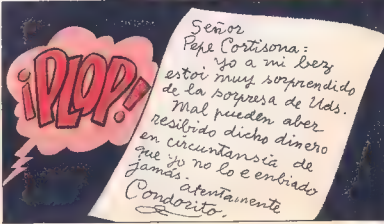 ¡PLOP!
Señor
Pepe Cortisona:
Yo a mi bez
estoi muy sorprendido
de la sorpresa de Uds.
Mal pueden aber
resibido dicho dinero
en circuntansia de
que yo no lo e enbiado
jamas.
atentamente
Condorito.